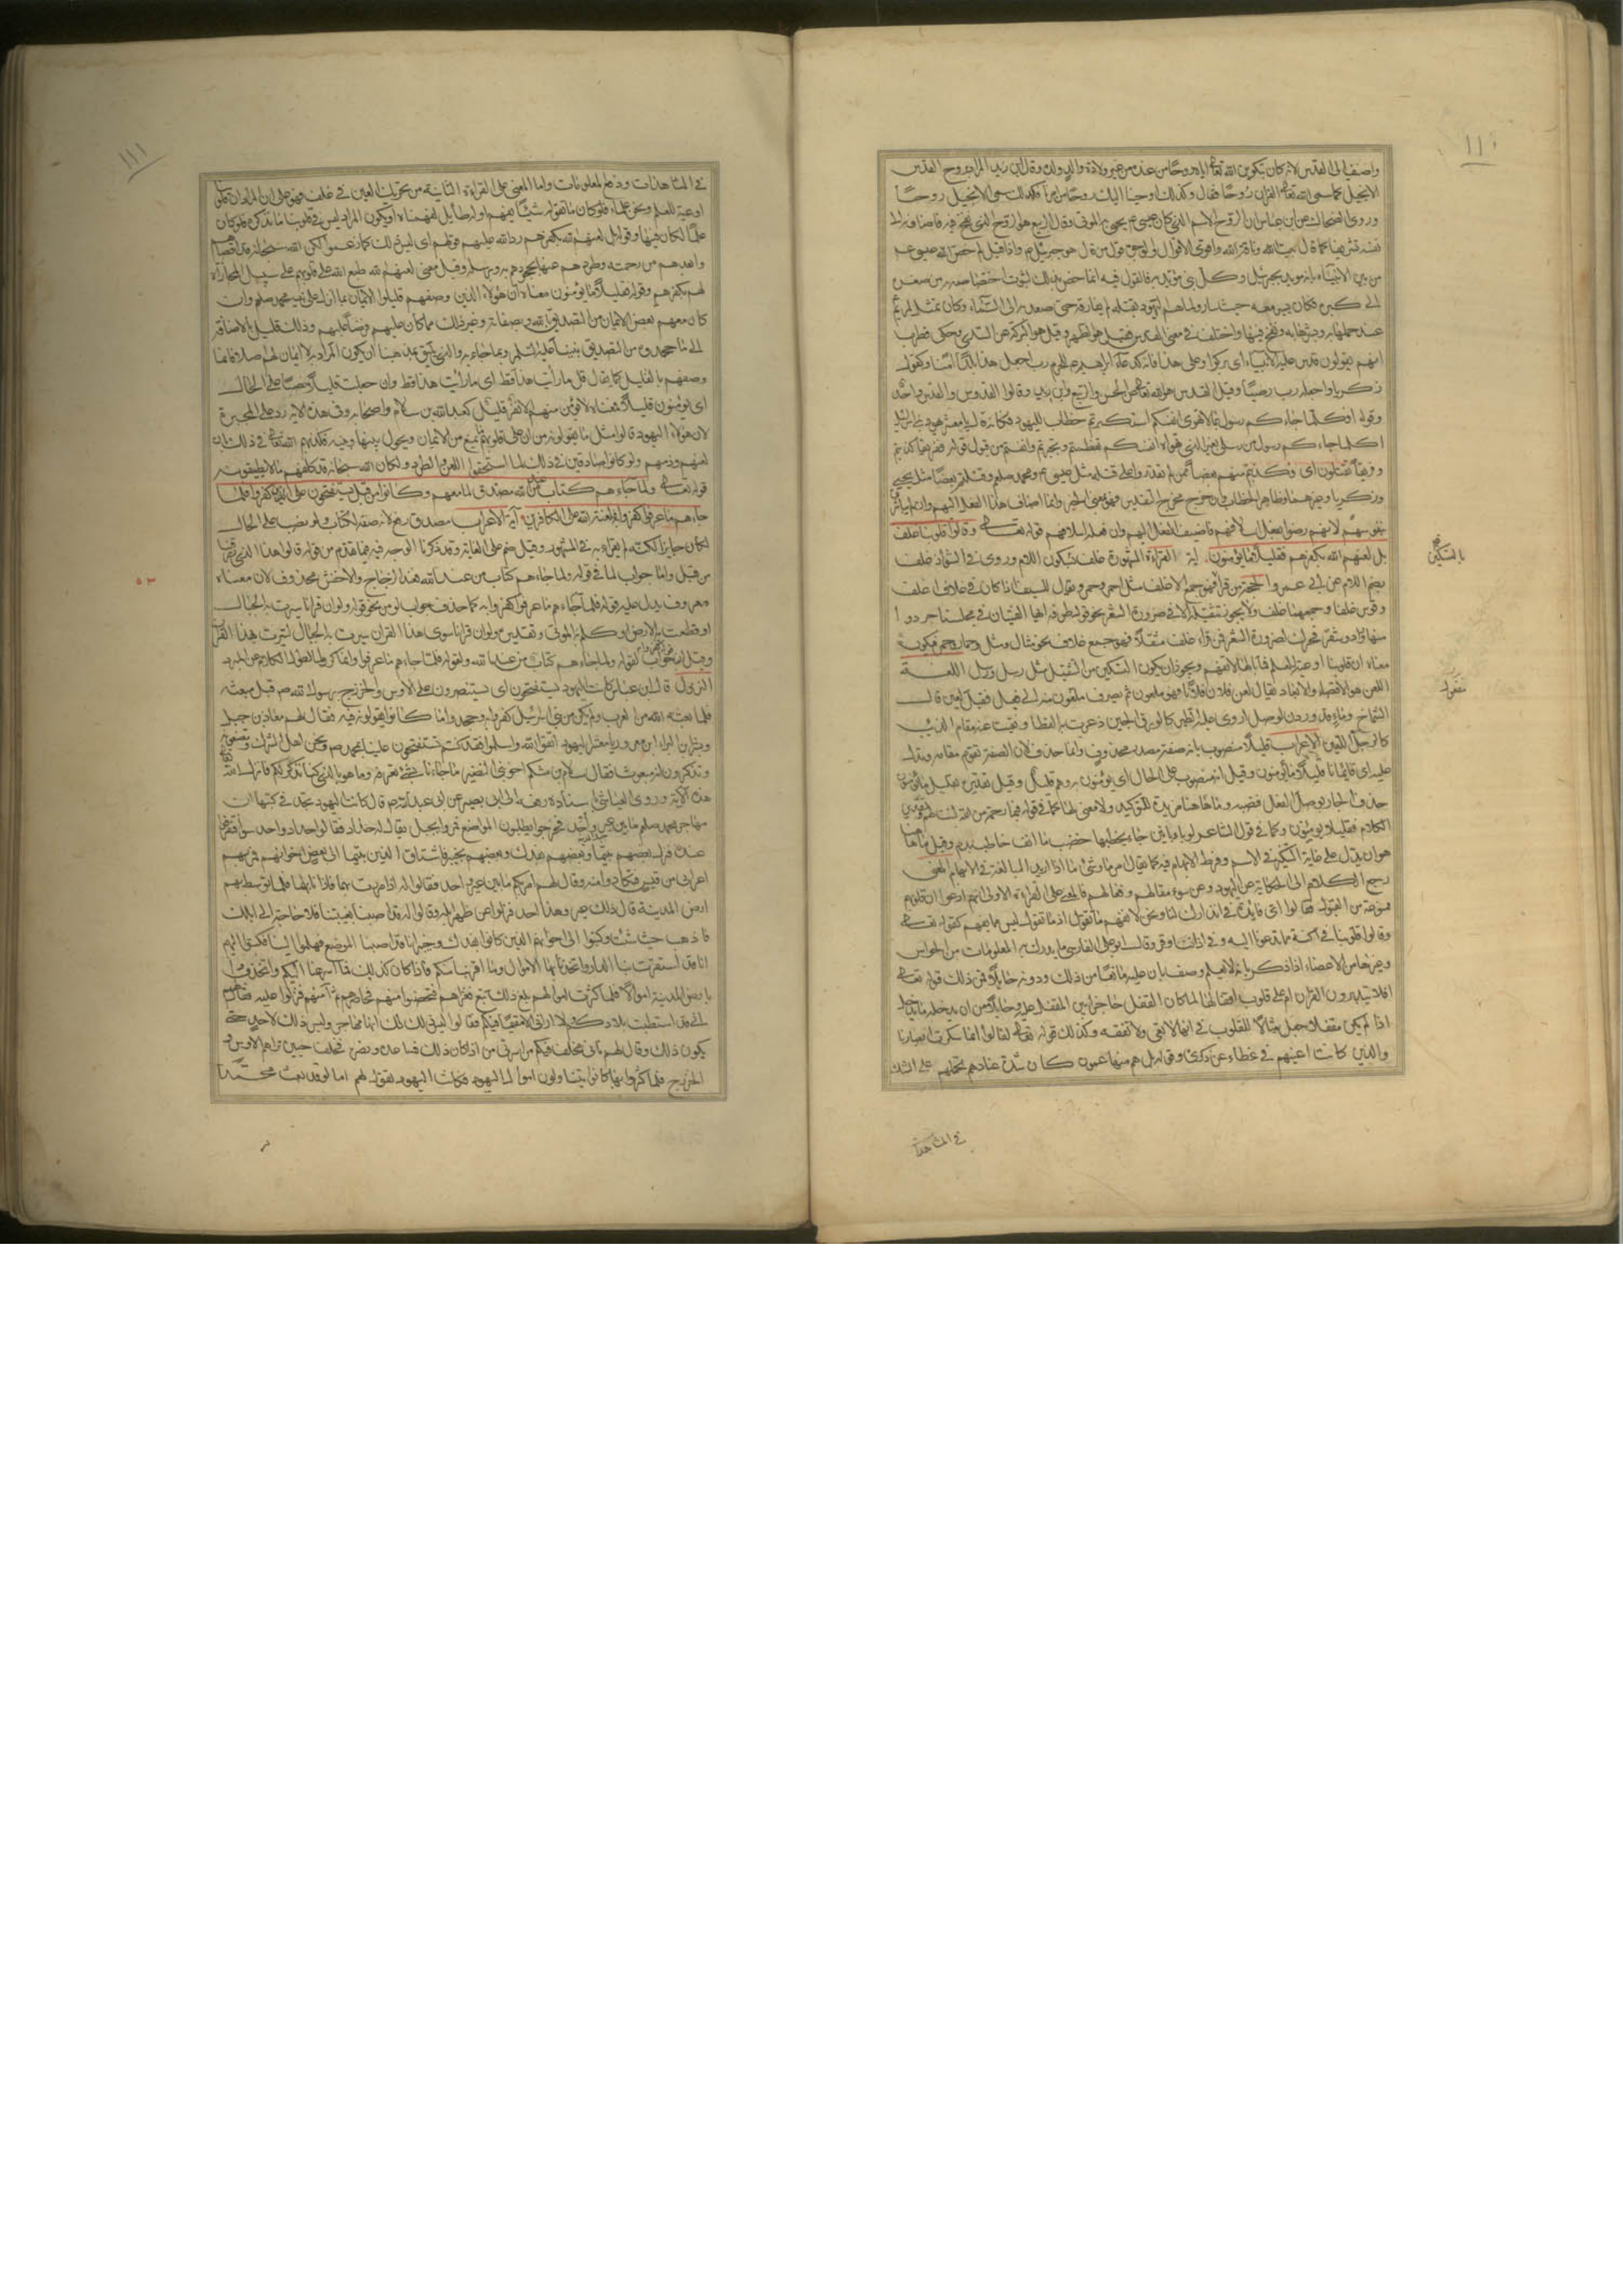 ١١٠
واضيف الى القدس لانه كان بتكوين الله تعالى اياه روحا من عنده من غير ولادة والد ولده وقال ابن زيد المراد بروح القدس
الانجيل كما سمى الله تعالى القران روحا فقال وكذلك اوحينا اليك روحا من امرنا فكذلك سمى الانجيل روحا
وروى الضحاك عن ابن عباس ان الروح الاسم الذي كان عيسى ع يحيي به الموتى وقال الربيع هو الروح الذي نفخ فيه فاضافه الى
نفسه تشريفا كما قال بيت الله وناقة الله واقوى الاقوال والوجوه قول من قال هو جبرئيل ع واذا قيل لم خص الله عيسى ع
من بين الانبياء بانه مويد بجبرئيل وكل نبي مؤيد به فالقول فيه انما خص بذلك لثبوت اختصاصه به من صغره
الى كبره فكان يسير معه حيث سار ولما هم اليهود بقتله لم يفارقه حتى صعد به الى السماء وكان تمثل لمريم
عند حملها به وبشرها به ونفخ فيها واختلف في معنى القدس فقيل هو الطهر وقيل هو البركة عن السدي وحكى قطرب
انهم يقولون قدس عليه الانبياء اى بركوا وعلى هذا فانه كدعاء ابراهيم ع للحرم رب اجعل هذا بلدا امنا وكقول
زكريا واجعله رب رضيا وقيل القدس هو الله تعالى عن الحسن والربيع وابن زيد وقالوا القدوس والقدس واحد
وقوله افكلما جاءكم رسول بما لا تهوى انفسكم استكبرتم خطاب لليهود فكانه قال يا معشر يهود بني اسرائيل
اكلما جاءكم رسول من رسلي بغير الذي تهواه انفسكم تعظمتم وتجبرتم وانفتم من قبول قوله ففريقا كذبتم
وفريقا تقتلون اى فكذبتم منهم بعضا ممن لم تقدروا على قتله مثل عيسى ع ومحمد صلعم وقتلتم بعضا مثل يحيى
وزكريا وغيرهما وظاهر الخطاب وان خرج مخرج التقدير فهو بمعنى الخبر وانما اضاف هذا الفعل اليهم وان لم يباشروه
بنفوسهم لانهم رضوا بفعل اسلافهم فاضيف الفعل اليهم وان فعله اسلافهم قوله تعالى وقالوا قلوبنا غلف
بل لعنهم الله بكفرهم فقليلا ما يؤمنون اية القراءة المشهورة غلف بسكون اللام وروى في الشواذ غلف
بضم اللام عن ابي عمرو الحجة من قرأ فهو جمع الاغلف مثل احمر وحمر ويقال للسيف اذا كان في غلاف اغلف
وقوس غلفا وجمعهما غلف ولا يجوز تثقيله الا في ضرورة الشعر نحو قول طرفة ايها الفتيان في مجلسنا جردوا
منها ورادا وشقر فحرك لضرورة الشعر فمن قراء غلف مثقلا فهو جمع غلاف نحو مثال ومثل وحمار وحمر فيكون
معناه ان قلوبنا اوعية للعلم فما بالها لا تفهم ويجوز ان يكون التسكين من التثقيل مثل رسل ورسل اللغة
اللعن هو الاقصاء والابعاد يقال لعن فلان فلانا فهو ملعون ثم يصرف ملعون منه الى فعيل فقيل لعين قال
الشماخ وماء قد وردت لوصل اروى عليه الطير كالورق اللجين ذعرت به القطا ونفيت عنه مقام الذئب
كالرجل اللعين الاعراب قليلا منصوب بانه صفة مصدر محذوف وانما حذف لان الصفة تقوم مقامه وتدل
عليه اى فايمانا قليلا ما يؤمنون وقيل انه منصوب على الحال اى يؤمنون وهم قليل وقيل تقديره بقليل ما يؤمنون
حذف الجار فوصل الفعل فنصبه وما هاهنا مزيدة للتوكيد ولا معنى لها كما في قوله فبما رحمة من الله لنت لهم تقدير
الكلام فقليلا يؤمنون وكما في قول الشاعر لو بابانين جاء يخطبها خضب ما انف خاطب بدم وقيل ما هاهنا
هو ان يدل على غاية التنكير في الاسم وفرط الابهام فيه كما يقال امر ما وشئ ما اذا اريد المبالغة في الابهام المعنى
رجع الكلام الى الحكاية عن اليهود وعن سوء مقالهم وفعالهم فالمعنى على القراءة الاولى انهم ادعوا ان قلوبهم
ممنوعة من القبول فقالوا اى فايدة في انذارك لنا ونحن لا نفهم ما تقول اذ ما تقوله ليس مما يفهم كقوله تعالى
وقالوا قلوبنا في اكنة مما تدعونا اليه وفي اذاننا وقر وقال ابو علي الفارسي ما يدرك به المعلومات من الحواس
وغيرها من الاعضاء اذا ذكر بانه لا يعلم وصف بان عليه مانعا من ذلك ودونه حايلا فمن ذلك قوله تعالى
افلا يتدبرون القران ام على قلوب اقفالها لما كان القفل حاجزا بين المقفل عليه وحايلا من ان يدخله ما يدخل
اذا لم يكن مقفلا جعل مثالا للقلوب في انها لا تعى ولا تفقه وكذلك قوله تعالى لقالوا انما سكرت ابصارنا
والذين كانت اعينهم في غطاء عن ذكرى وقوله بل هم منها عمون كان شدة عنادهم تحملهم على الشك
بالتسكين
في المشاهدات
١١١
في المشاهدات ودفع المعلومات واما المعنى على القراءة الثانية من تحريك العين في غلف فهو على ان المراد ان قلوبنا
اوعية للعلم ونحن علماء فلو كان ما تقوله شيئا يفهم اوله طائل لفهمناه او يكون المراد ليس في قلوبنا ما تذكره فلو كان
علما لكان فيها وقوله بل لعنهم الله بكفرهم رد الله عليهم قولهم اى ليس ذلك كما زعموا لكن الله سبحانه قد اقصاهم
وابعدهم من رحمته وطردهم عنها لجحودهم به وبرسله وقيل معنى لعنهم الله طبع الله على قلوبهم على سبيل المجازاة
لهم بكفرهم وقوله فقليلا ما يؤمنون معناه ان هؤلاء الذين وصفهم قليلوا الايمان بما انزل على نبيه محمد صلعم وان
كان معهم بعض الايمان من التصديق بالله وبصفاته وغير ذلك مما كان عليهم فرضا عليهم وذلك قليل بالاضافة
الى ما جحدوه من التصديق بنبينا عليه السلم وبما جاء به والذي يليق بمذهبنا ان يكون المراد به لا ايمان لهم اصلا وانما
وصفهم بالقليل كما يقال قل ما رأيت هذا قط اى ما رأيت هذا قط وان جعلت قليلا نصبا على الحال
اى يؤمنون قليلا فمعناه لا يؤمن منهم الا نفر قليل كعبد الله بن سلام واصحابه وفي هذه الاية رد على المجبرة
لان هؤلاء اليهود قالوا مثل ما يقولونه من ان على قلوبهم ما يمنع من الايمان ويحول بينها وبينه فكذبهم الله تعالى في ذلك بان
لعنهم وذمهم ولو كانوا صادقين في ذلك لما استحقوا اللعن والطرد ولكان الله سبحانه قد كلفهم ما لا يطيقونه
قوله تعالى ولما جاءهم كتاب من عند الله مصدق لما معهم وكانوا من قبل يستفتحون على الذين كفروا فلما
جاءهم ما عرفوا كفروا به فلعنة الله على الكافرين اية الاعراب مصدق رفع لانه صفة لكتاب ولو نصب على الحال
لكان جايزا لكنه لم يقراء به في المشهور وقيل ضم على الغاية وقد ذكرنا الوجه فيه فيما تقدم من قوله قالوا هذا الذي رزقنا
من قبل واما جواب لما في قوله ولما جاءهم كتاب من عند الله فعند الزجاج والاخفش محذوف لان معناه
معروف يدل عليه قوله فلما جاءهم ما عرفوا كفروا به كما حذف جواب لو من نحو قوله ولو ان قرانا سيرت به الجبال
او قطعت به الارض او كلم به الموتى وتقديره ولو ان قرانا سوى هذا القران سيرت به الجبال لسيرت بهذا القران
وقيل ان جواب لقوله ولما جاءهم كتاب من عند الله ولقوله فلما جاءهم ما عرفوا وانما كرر لما لطول الكلام عن المبرد
النزول قال ابن عباس كانت اليهود يستفتحون اى يستنصرون على الاوس والخزرج برسول الله ص قبل مبعثه
فلما بعثه الله من العرب ولم يكن من بني اسرائيل كفروا به وجحدوا ما كانوا يقولونه فيه فقال لهم معاذ بن جبل
وبشر بن البراء ابن معرور يا معشر اليهود اتقوا الله واسلموا فقد كنتم تستفتحون علينا بمحمد ص ونحن اهل الشرك وتصفونه
وتذكرون انه مبعوث فقال سلام بن مشكم اخو بني النضير ما جاءنا بشئ نعرفه وما هو بالذي كنا نذكر لكم فانزل الله تعالى
هذه الاية وروى العياشي باسناده رفعه الى ابي بصير عن ابي عبد الله ع قال كانت اليهود تجد في كتبها ان
مهاجر محمد صلعم ما بين عير واحد فخرجوا يطلبون الموضع فمروا بجبل يقال له حداد فقالوا حداد واحد سواء فتفرقوا
عنده فنزل بعضهم بتيما وبعضهم بفدك وبعضهم بخيبر فاشتاق الذين بتيما الى بعض اخوانهم فمر بهم
اعرابي من قيس فتكاروا منه وقال لهم امر بكم ما بين عير واحد فقالوا له اذا مررت بهما فاذنا بهما فلما توسط بهم
ارض المدينة قال ذلك عير وهذا احد فنزلوا عن ظهر ابله وقالوا له قد اصبنا بغيتنا فلا حاجة الى ابلك
فاذهب حيث شئت وكتبوا الى اخوانهم الذين كانوا بفدك وخيبر انا قد اصبنا الموضع فهلموا الينا فكتبوا اليهم
انا قد استقرت بنا الدار واتخذنا بها الاموال وما اقربنا منكم فاذا كان كذلك فما اسرعنا اليكم واتخذوا
بارض المدينة اموالا فلما كثرت اموالهم بلغ ذلك تبع فغزاهم فتحصنوا منهم فحاصرهم ثم آمنهم فنزلوا عليه فقال لهم
اني قد استطبت بلادكم ولا اراني الا مقيما فيكم فقالوا ليس ذلك لك انها مهاجر نبي وليس ذلك لاحد حتى
يكون ذلك وقال لهم فاني مخلف فيكم من اسرتي من اذا كان ذلك ساعده ونصره فخلف حيين تراهم الاوس و
الخزرج فلما كثروا بها كانوا يتناولون اموال اليهود فكانت اليهود تقول لهم اما لو قد بعث محمدا